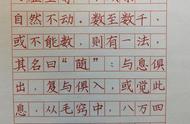 自然不动。数至数千，
或不能数，则有一法，
其名曰“随”：与息俱
出，复与俱入，或觉此
息，从毛窍中，八万四